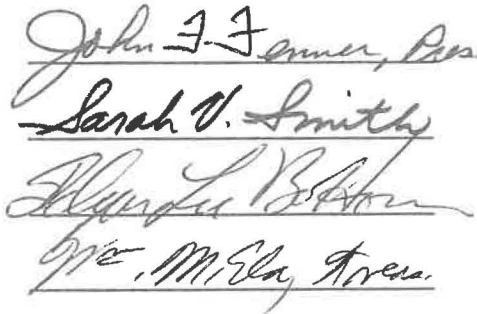 John F. Fenner, Pres.
Sarah V. Smith
Lee
Wm. M. Eloy Treas.